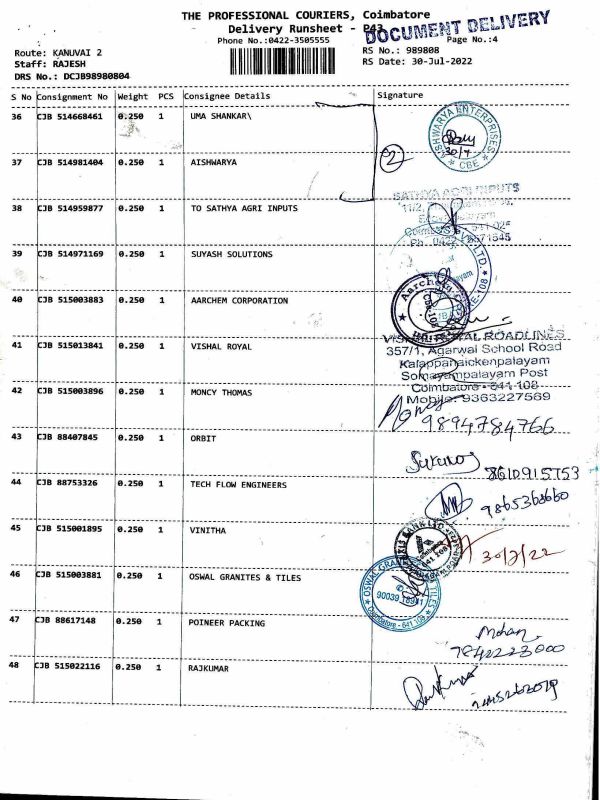 THE PROFESSIONAL COURIERS, Coimbatore
Delivery Runsheet - P43
DOCUMENT DELIVERY
Phone No.:0422-3505555
Page No.:4
Route: KANUVAI 2
RS No.: 989808
Staff: RAJESH
RS Date: 30-Jul-2022
DRS No.: DCJB98980804
S No Consignment No Weight PCS Consignee Details Signature
36 CJB 514668461 0.250 1 UMA SHANKAR\
AISHWARYA ENTERPRISES
CBE
30/7
2
37 CJB 514981404 0.250 1 AISHWARYA
SATHYA AGRI INPUTS
38 CJB 514959877 0.250 1 TO SATHYA AGRI INPUTS
39 CJB 514971169 0.250 1 SUYASH SOLUTIONS
40 CJB 515003883 0.250 1 AARCHEM CORPORATION
Aarchem
41 CJB 515013841 0.250 1 VISHAL ROYAL
ROADLINES
357/1, Agarwal School Road
Kalappanaickenpalayam
Somayampalayam Post
Coimbatore - 641 108
Mobile: 9363227569
42 CJB 515003896 0.250 1 MONCY THOMAS
9894784766
43 CJB 88407845 0.250 1 ORBIT
8610915753
44 CJB 88753326 0.250 1 TECH FLOW ENGINEERS
9865368660
45 CJB 515001895 0.250 1 VINITHA
AXIS BANK LTD
30/7/22
46 CJB 515003881 0.250 1 OSWAL GRANITES & TILES
OSWAL GRANITES & TILES
Coimbatore - 641 108
47 CJB 88617148 0.250 1 POINEER PACKING
Mohan
7842223000
48 CJB 515022116 0.250 1 RAJKUMAR